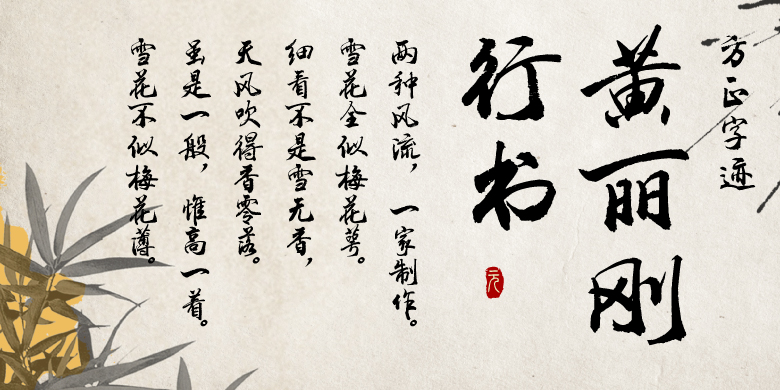 方正字迹
黄丽刚
行书
两种风流，一家制作。
雪花全似梅花萼。
细看不是雪无香，
天风吹得香零落。
虽是一般，惟高一着。
雪花不似梅花薄。